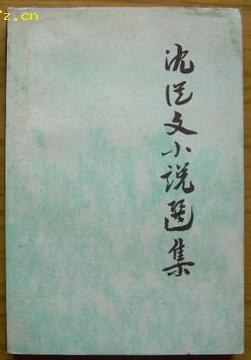 z.cn
沈从文小说选集